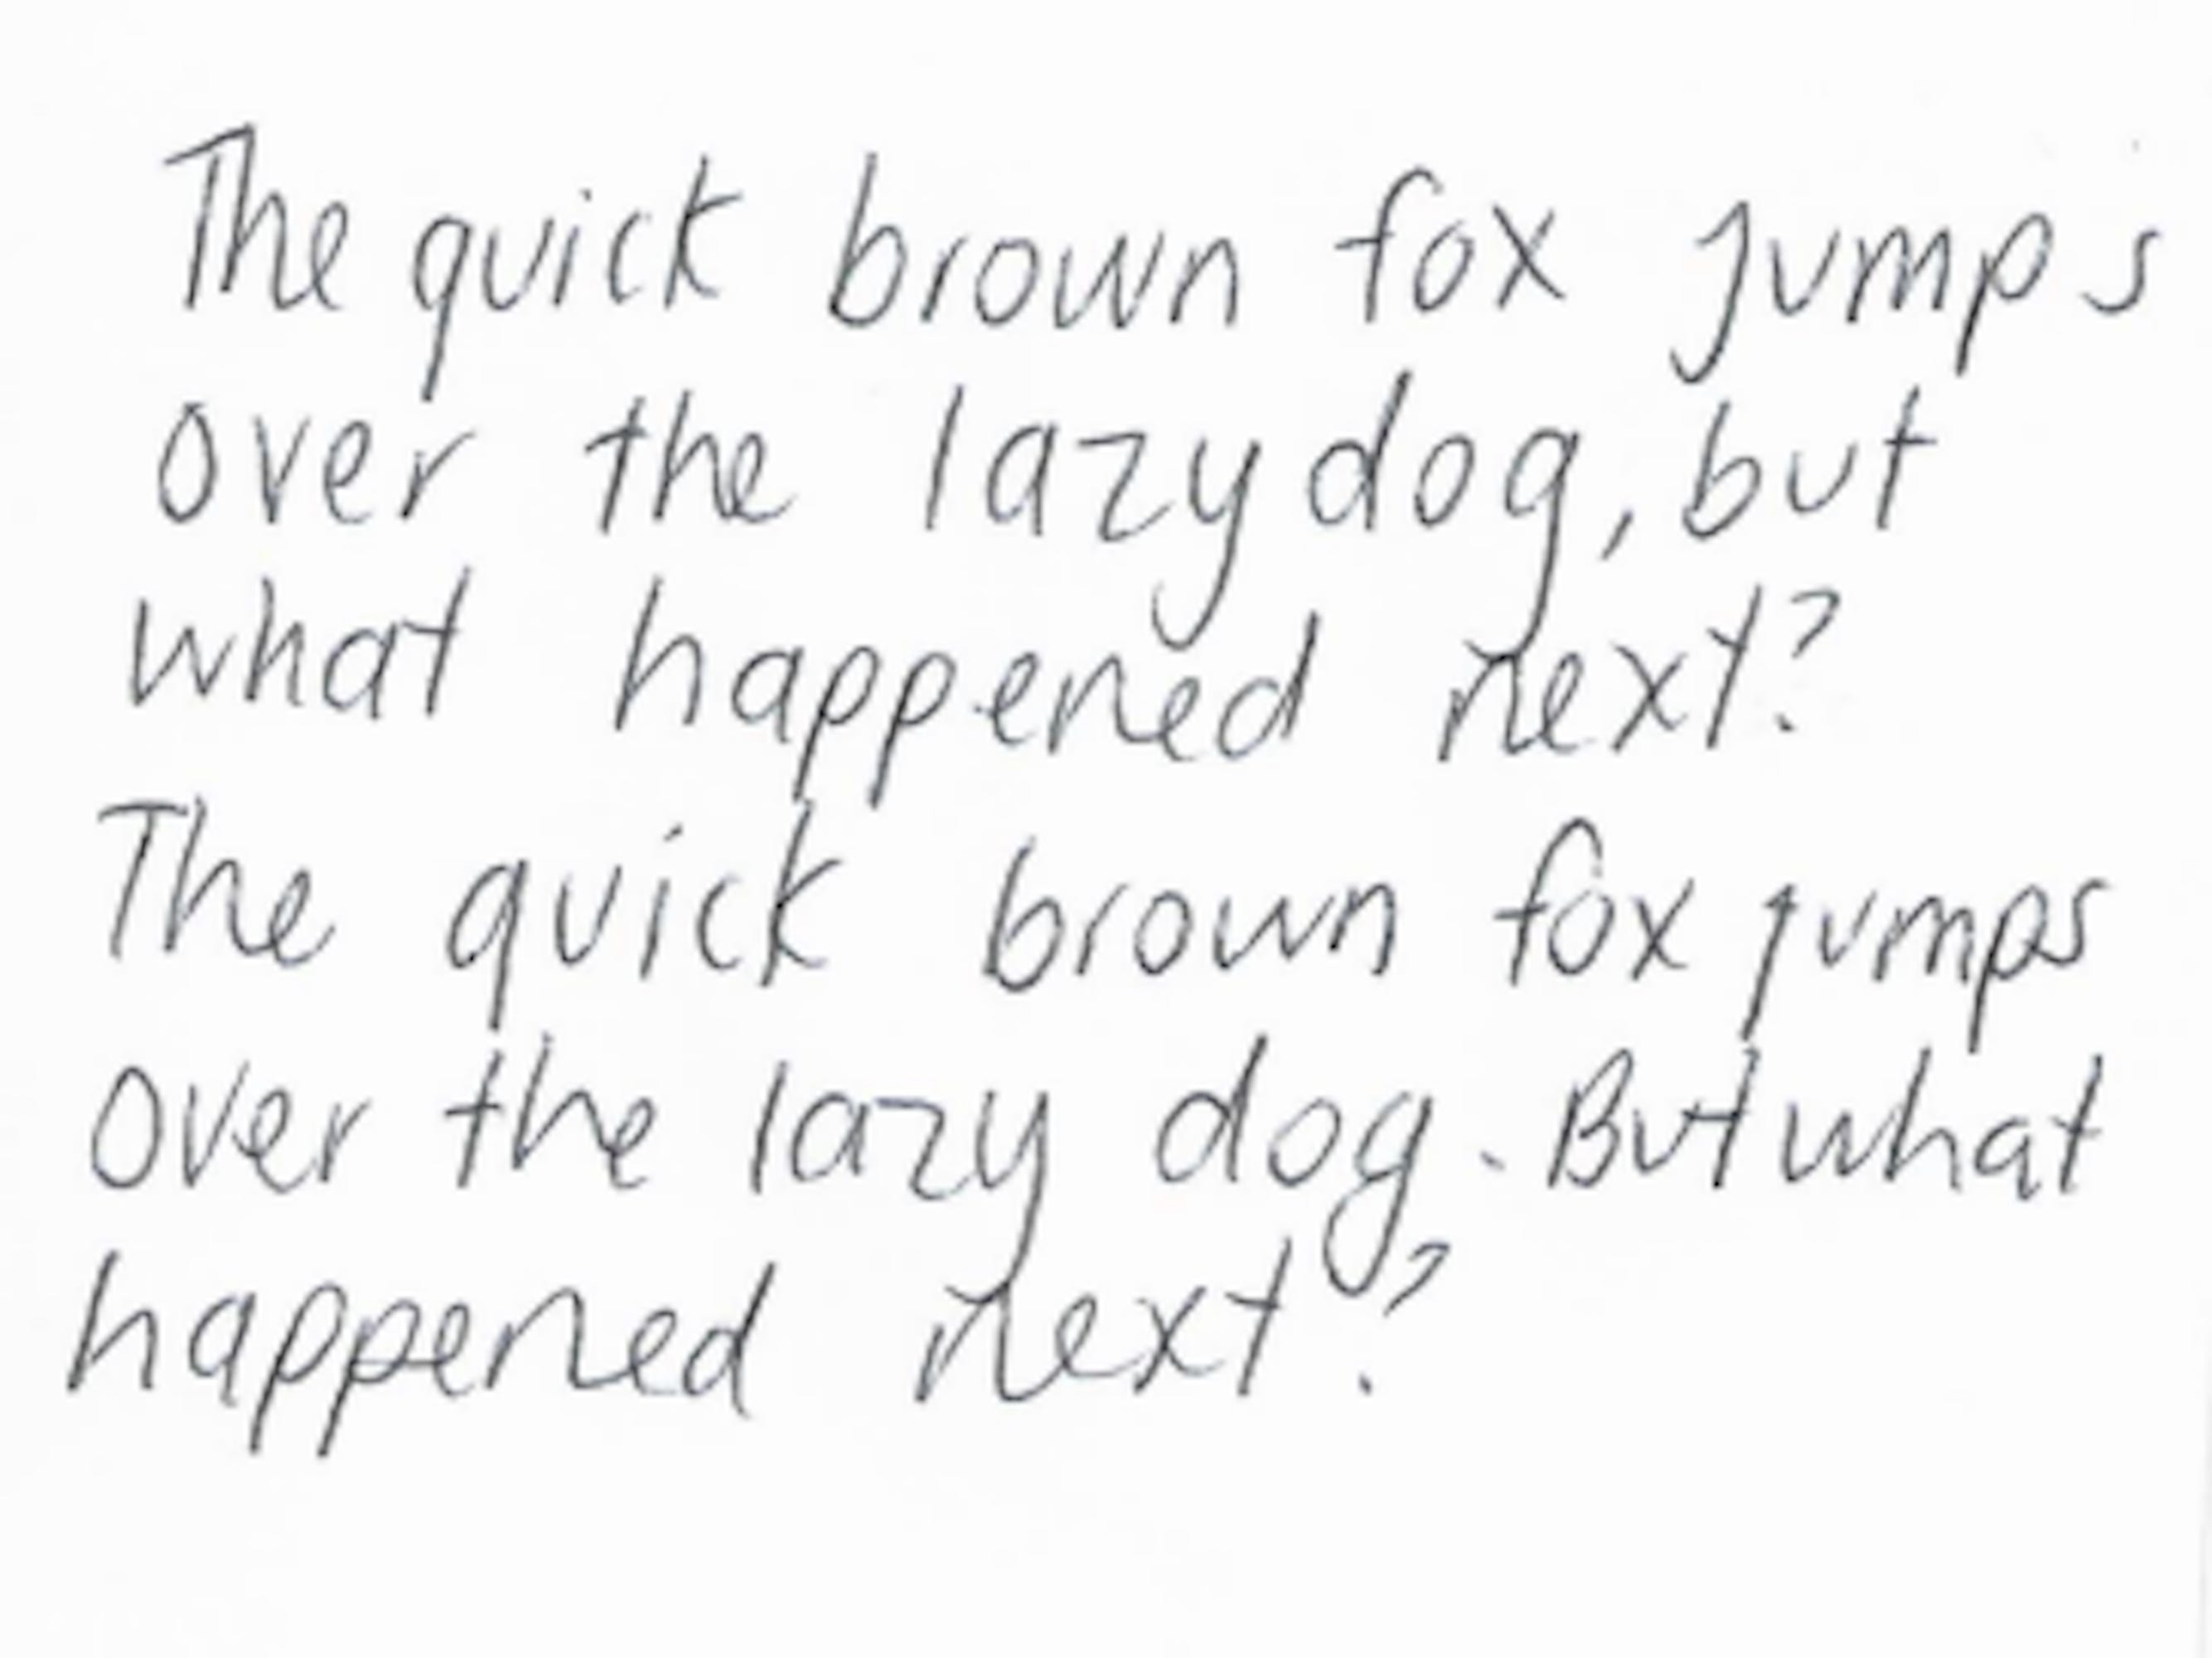 The quick brown fox jumps
over the lazy dog, but
what happened next?
The quick brown fox jumps
over the lazy dog. But what
happened next?